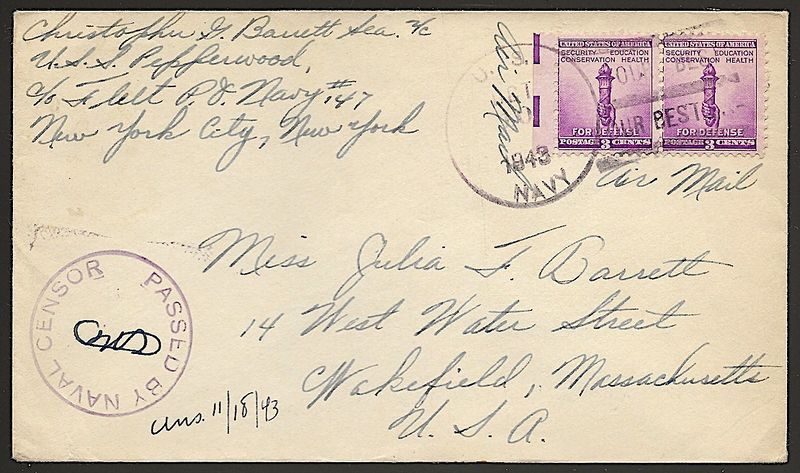 Christopher G. Barrett Sea. 2/c
U.S.S. Pepperwood,
c/o Fleet P.O. Navy #147
New York City, New York
Air Mail
U. S.
1943
NAVY
UNITED STATES OF AMERICA
SECURITY EDUCATION
CONSERVATION HEALTH
FOR DEFENSE
POSTAGE 3 CENTS
UNITED STATES OF AMERICA
SECURITY EDUCATION
CONSERVATION HEALTH
FOR DEFENSE
POSTAGE 3 CENTS
BEST
Air Mail
Miss Julia F. Barrett
14 West Water Street
Wakefield, Massachusetts
U. S. A.
PASSED BY NAVAL CENSOR
11/18/43